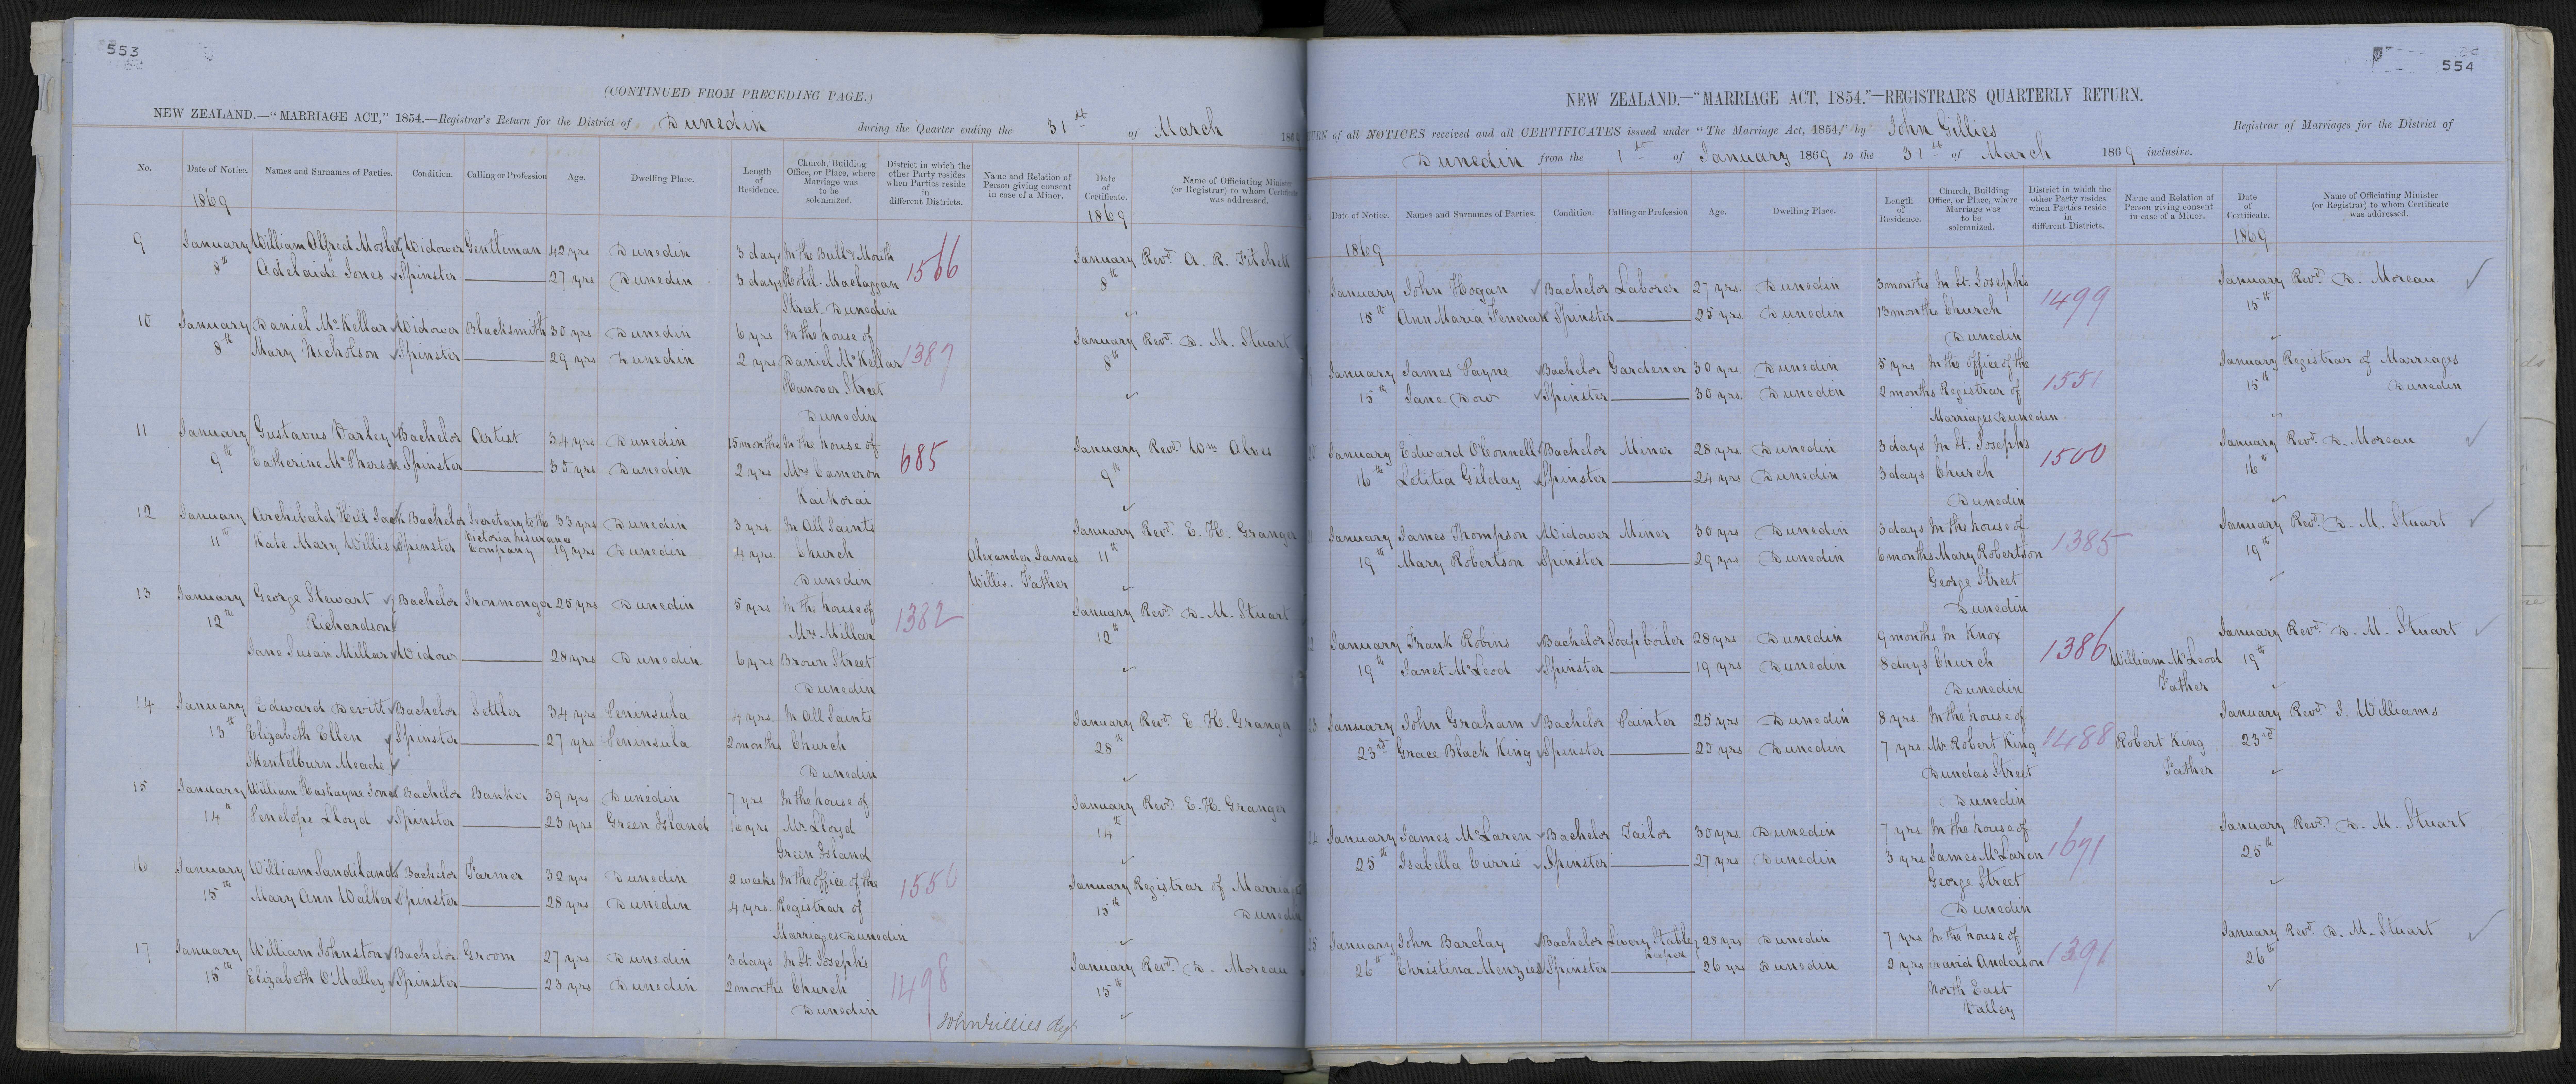 553
(CONTINUED FROM PRECEDING PAGE.)
NEW ZEALAND.—"MARRIAGE ACT," 1854.—Registrar's Return for the District of Dunedin during the Quarter ending the 31st of March 186
No. Date of Notice. Names and Surnames of Parties. Condition. Calling or Profession Age. Dwelling Place. Length of Residence. Church, Building Office, or Place, where Marriage was to be solemnized. District in which the other Party resides when Parties reside in different Districts. Name and Relation of Person giving consent in case of a Minor. Date of Certificate. Name of Officiating Minister (or Registrar) to whom Certificate was addressed.
1869 1869
9 January William Alfred Mosley Widower Gentleman 42 yrs Dunedin 3 days In the Bull & Mouth 1566 January Revd. A. R. Fitchett
8th Adelaide Jones Spinster 27 yrs Dunedin 3 days Hotel Maclaggan 8th
Street Dunedin
10 January Daniel McKellar Widower Blacksmith 30 yrs Dunedin 6 yrs In the house of January Revd. D. M. Stuart
8th Mary Nicholson Spinster 29 yrs Dunedin 2 yrs Daniel McKellar 1387 8th
Hanover Street
Dunedin
11 January Gustavus Varley Bachelor Artist 34 yrs Dunedin 15 months In the house of 685 January Revd. Wm Alves
9th Catherine McPherson Spinster 30 yrs Dunedin 2 yrs Mrs Cameron 9th
Kaikorai
12 January Archibald Hill Jack Bachelor Secretary to the 33 yrs Dunedin 3 yrs. In All Saints January Revd. E. H. Granger
Victoria Insurance
11th Kate Mary Willis Spinster Company 19 yrs Dunedin 4 yrs. Church Alexander James 11th
Dunedin Willis. Father
13 January George Stewart Bachelor Ironmonger 25 yrs Dunedin 5 yrs In the house of 1382 January Revd. D. M. Stuart
12th Richardson Mrs Millar 12th
Jane Susan Millar Widow 28 yrs Dunedin 6 yrs Brown Street
Dunedin
14 January Edward Devitt Bachelor Settler 34 yrs Peninsula 4 yrs. In All Saints January Revd. E. H. Granger
13th Elizabeth Ellen Spinster 27 yrs Peninsula 2 months Church 28th
Skentelburn Meade Dunedin
15 January William Haskayne Jones Bachelor Banker 39 yrs Dunedin 7 yrs. In the house of January Revd. E. H. Granger
14th Penelope Lloyd Spinster 23 yrs Green Island 16 yrs Mr. Lloyd 14th
Green Island
16 January William Sandilands Bachelor Farmer 32 yrs Dunedin 2 weeks In the office of the 1550 January Registrar of Marriages
15th Mary Ann Walker Spinster 28 yrs Dunedin 4 yrs. Registrar of 15th Dunedin
Marriages Dunedin
17 January William Johnston Bachelor Groom 27 yrs Dunedin 3 days In St. Joseph's 1498 January Revd. D. Moreau
15th Elizabeth O'Malley Spinster 23 yrs Dunedin 2 months Church 15th
Dunedin
John Gillies Regr.
554
NEW ZEALAND.—"MARRIAGE ACT, 1854."—REGISTRAR'S QUARTERLY RETURN.
TURN of all NOTICES received and all CERTIFICATES issued under "The Marriage Act, 1854," by John Gillies Registrar of Marriages for the District of
Dunedin from the 1st of January 1869 to the 31st of March 1869 inclusive.
Date of Notice. Names and Surnames of Parties. Condition. Calling or Profession Age. Dwelling Place. Length of Residence. Church, Building Office, or Place, where Marriage was to be solemnized. District in which the other Party resides when Parties reside in different Districts. Name and Relation of Person giving consent in case of a Minor. Date of Certificate. Name of Officiating Minister (or Registrar) to whom Certificate was addressed.
1869 1869
January John Hogan Bachelor Laborer 27 yrs. Dunedin 3 months In St. Joseph's 1499 January Revd. D. Moreau
15th Ann Maria Feneran Spinster 25 yrs Dunedin 13 months Church 15th
Dunedin
January James Payne Bachelor Gardener 30 yrs. Dunedin 5 yrs In the office of the 1551 January Registrar of Marriages
15th Jane Dow Spinster 30 yrs. Dunedin 2 months Registrar of 15th Dunedin
Marriages Dunedin
January Edward O'Connell Bachelor Miner 28 yrs Dunedin 3 days In St. Joseph's 1500 January Revd. D. Moreau
16th Letitia Gilday Spinster 24 yrs Dunedin 3 days Church 16th
Dunedin
January James Thompson Widower Miner 30 yrs Dunedin 3 days In the house of 1385 January Revd. D. M. Stuart
19th Mary Robertson Spinster 29 yrs Dunedin 6 months Mary Robertson 19th
George Street
Dunedin
January Frank Robins Bachelor Soapboiler 28 yrs Dunedin 9 months In Knox 1386 January Revd. D. M. Stuart
19th Janet McLeod Spinster 19 yrs Dunedin 8 days Church William McLeod 19th
Dunedin Father
January John Graham Bachelor Painter 25 yrs Dunedin 8 yrs. In the house of 1488 January Revd. J. Williams
23rd Grace Black King Spinster 20 yrs Dunedin 7 yrs. Mr. Robert King Robert King 23rd
Dundas Street Father
Dunedin
24 January James McLaren Bachelor Tailor 30 yrs. Dunedin 7 yrs. In the house of 1691 January Revd. D. M. Stuart
25th Isabella Currie Spinster 27 yrs Dunedin 3 yrs James McLaren 25th
George Street
Dunedin
25 January John Barclay Bachelor Livery Stable 28 yrs Dunedin 7 yrs In the house of 1391 January Revd. D. M. Stuart
Keeper
26th Christina Menzies Spinster 26 yrs Dunedin 2 yrs David Anderson 26th
North East
Valley